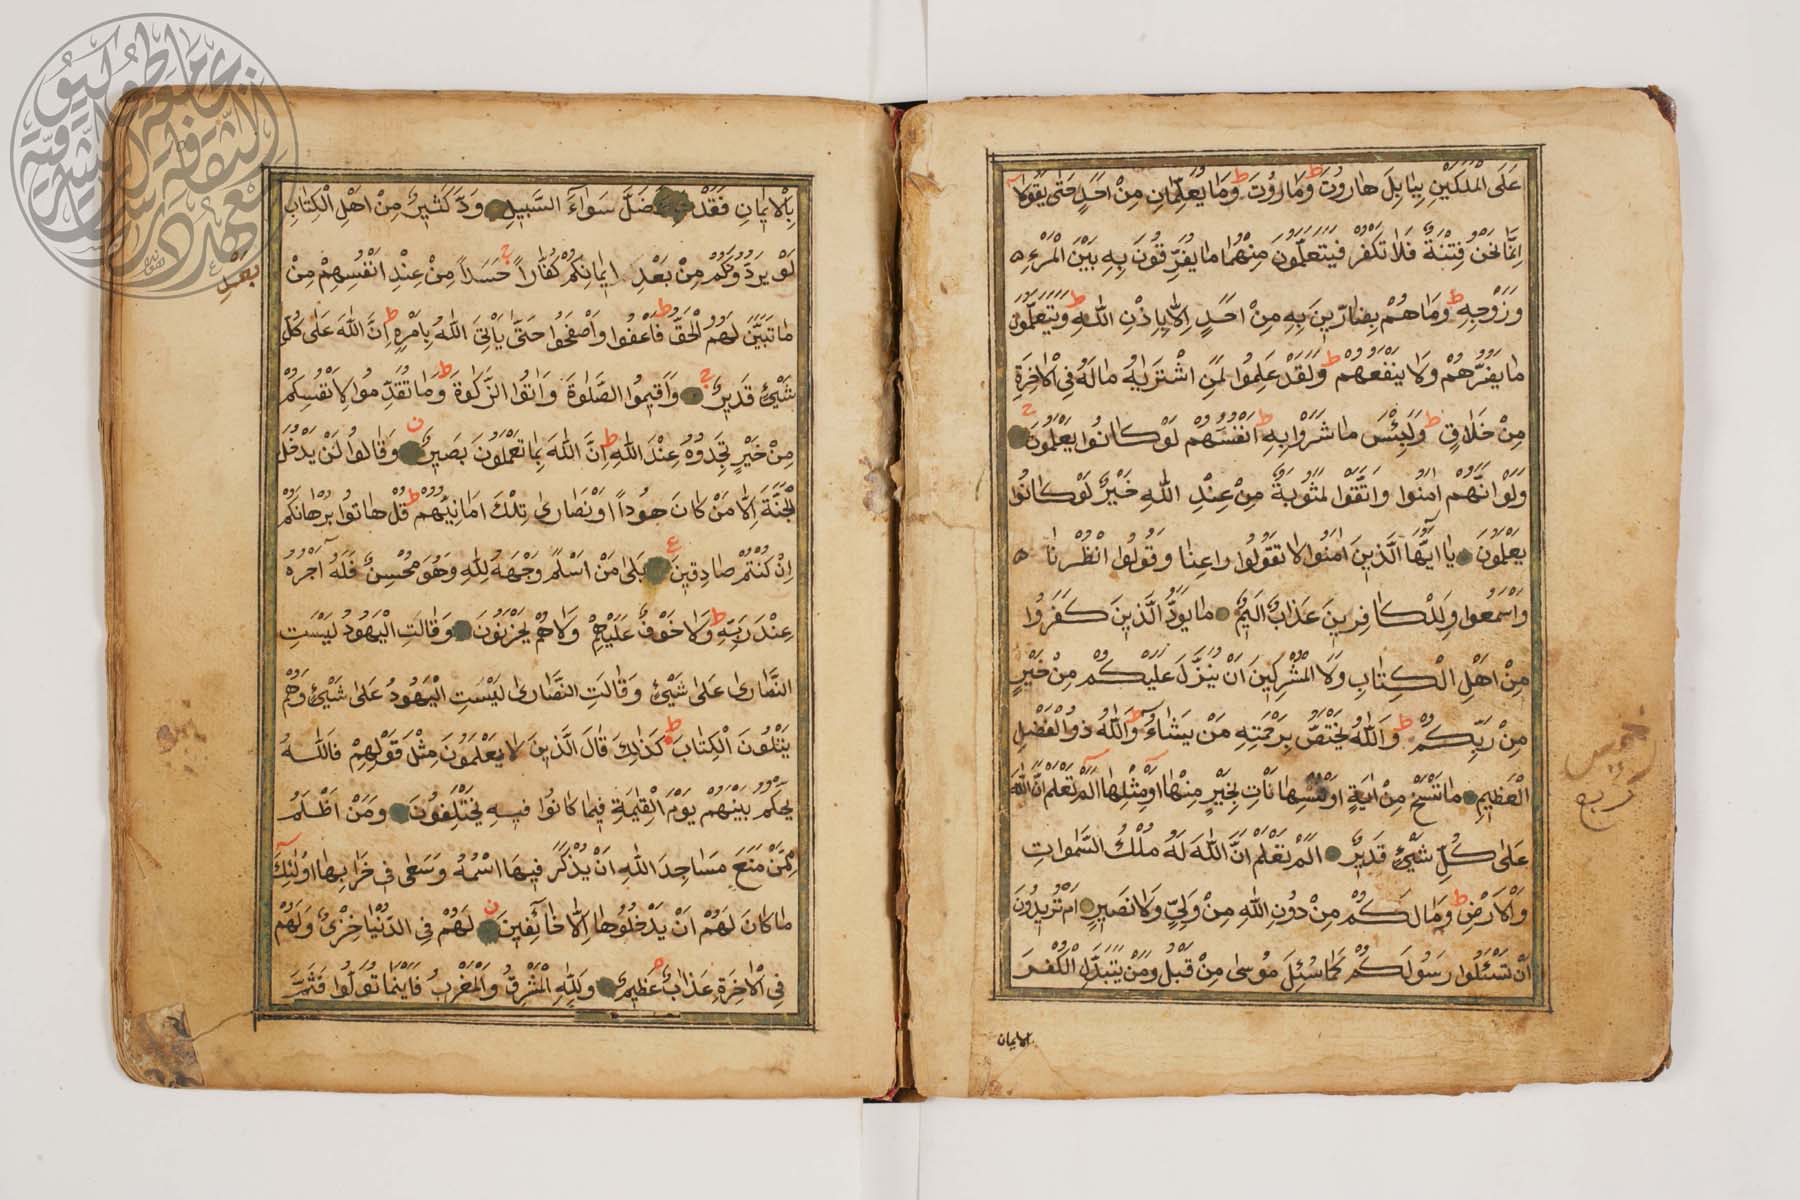 عَلَى الْمَلَكَيْنِ بِبَابِلَ هَارُوتَ وَمَارُوتَ وَمَا يُعَلِّمَانِ مِنْ اَحَدٍ حَتّٰى يَقُولَا
اِنَّمَا نَحْنُ فِتْنَةٌ فَلَا تَكْفُرْ فَيَتَعَلَّمُونَ مِنْهُمَا مَا يُفَرِّقُونَ بِهِ بَيْنَ الْمَرْءِ
وَزَوْجِهِ وَمَا هُمْ بِضَارّ۪ينَ بِهِ مِنْ اَحَدٍ اِلَّا بِاِذْنِ اللّٰهِ وَيَتَعَلَّمُونَ
مَا يَضُرُّهُمْ وَلَا يَنْفَعُهُمْ وَلَقَدْ عَلِمُوا لَمَنِ اشْتَرٰيهُ مَا لَهُ فِي الْاٰخِرَةِ
مِنْ خَلَاقٍ وَلَبِئْسَ مَا شَرَوْا بِهِ اَنْفُسَهُمْ لَوْ كَانُوا يَعْلَمُونَ
وَلَوْ اَنَّهُمْ اٰمَنُوا وَاتَّقَوْا لَمَثُوبَةٌ مِنْ عِنْدِ اللّٰهِ خَيْرٌ لَوْ كَانُوا
يَعْلَمُونَ يَا اَيُّهَا الَّذ۪ينَ اٰمَنُوا لَا تَقُولُوا رَاعِنَا وَقُولُوا انْظُرْنَا
وَاسْمَعُوا وَلِلْكَافِر۪ينَ عَذَابٌ اَل۪يمٌ مَا يَوَدُّ الَّذ۪ينَ كَفَرُوا
مِنْ اَهْلِ الْكِتَابِ وَلَا الْمُشْرِك۪ينَ اَنْ يُنَزَّلَ عَلَيْكُمْ مِنْ خَيْرٍ
مِنْ رَبِّكُمْ وَاللّٰهُ يَخْتَصُّ بِرَحْمَتِهِ مَنْ يَشَاءُ وَاللّٰهُ ذُو الْفَضْلِ
الْعَظ۪يمِ مَا نَنْسَخْ مِنْ اٰيَةٍ اَوْ نُنْسِهَا نَأْتِ بِخَيْرٍ مِنْهَا اَوْ مِثْلِهَا اَلَمْ تَعْلَمْ اَنَّ اللّٰهَ
عَلٰى كُلِّ شَيْءٍ قَد۪يرٌ اَلَمْ تَعْلَمْ اَنَّ اللّٰهَ لَهُ مُلْكُ السَّمٰوَاتِ
وَالْاَرْضِ وَمَا لَكُمْ مِنْ دُونِ اللّٰهِ مِنْ وَلِيٍّ وَلَا نَص۪يرٍ اَمْ تُر۪يدُونَ
اَنْ تَسْئَلُوا رَسُولَكُمْ كَمَا سُئِلَ مُوسٰى مِنْ قَبْلُ وَمَنْ يَتَبَدَّلِ الْكُفْرَ
الايمان
بِالْا۪يمَانِ فَقَدْ ضَلَّ سَوَاءَ السَّب۪يلِ وَدَّ كَث۪يرٌ مِنْ اَهْلِ الْكِتَابِ
لَوْ يَرُدُّونَكُمْ مِنْ بَعْدِ ا۪يمَانِكُمْ كُفَّاراً حَسَداً مِنْ عِنْدِ اَنْفُسِهِمْ مِنْ
بَعْدِ
مَا تَبَيَّنَ لَهُمُ الْحَقُّ فَاعْفُوا وَاصْفَحُوا حَتّٰى يَأْتِيَ اللّٰهُ بِاَمْرِهِ اِنَّ اللّٰهَ عَلٰى كُلِّ
شَيْءٍ قَد۪يرٌ وَاَق۪يمُوا الصَّلٰوةَ وَاٰتُوا الزَّكٰوةَ وَمَا تُقَدِّمُوا لِاَنْفُسِكُمْ
مِنْ خَيْرٍ تَجِدُوهُ عِنْدَ اللّٰهِ اِنَّ اللّٰهَ بِمَا تَعْمَلُونَ بَص۪يرٌ وَقَالُوا لَنْ يَدْخُلَ
الْجَنَّةَ اِلَّا مَنْ كَانَ هُوداً اَوْ نَصَارٰى تِلْكَ اَمَانِيُّهُمْ قُلْ هَاتُوا بُرْهَانَكُمْ
اِنْ كُنْتُمْ صَادِق۪ينَ بَلٰى مَنْ اَسْلَمَ وَجْهَهُ لِلّٰهِ وَهُوَ مُحْسِنٌ فَلَهُ اَجْرُهُ
عِنْدَ رَبِّهِ وَلَا خَوْفٌ عَلَيْهِمْ وَلَا هُمْ يَحْزَنُونَ وَقَالَتِ الْيَهُودُ لَيْسَتِ
النَّصَارٰى عَلٰى شَيْءٍ وَقَالَتِ النَّصَارٰى لَيْسَتِ الْيَهُودُ عَلٰى شَيْءٍ وَهُمْ
يَتْلُونَ الْكِتَابَ كَذٰلِكَ قَالَ الَّذ۪ينَ لَا يَعْلَمُونَ مِثْلَ قَوْلِهِمْ فَاللّٰهُ
يَحْكُمُ بَيْنَهُمْ يَوْمَ الْقِيٰمَةِ ف۪يمَا كَانُوا ف۪يهِ يَخْتَلِفُونَ وَمَنْ اَظْلَمُ
مِمَّنْ مَنَعَ مَسَاجِدَ اللّٰهِ اَنْ يُذْكَرَ ف۪يهَا اسْمُهُ وَسَعٰى ف۪ي خَرَابِهَا اُولٰئِكَ
مَا كَانَ لَهُمْ اَنْ يَدْخُلُوهَا اِلَّا خَائِف۪ينَ لَهُمْ فِي الدُّنْيَا خِزْيٌ وَلَهُمْ
فِي الْاٰخِرَةِ عَذَابٌ عَظ۪يمٌ وَلِلّٰهِ الْمَشْرِقُ وَالْمَغْرِبُ فَاَيْنَمَا تُوَلُّوا فَثَمَّ